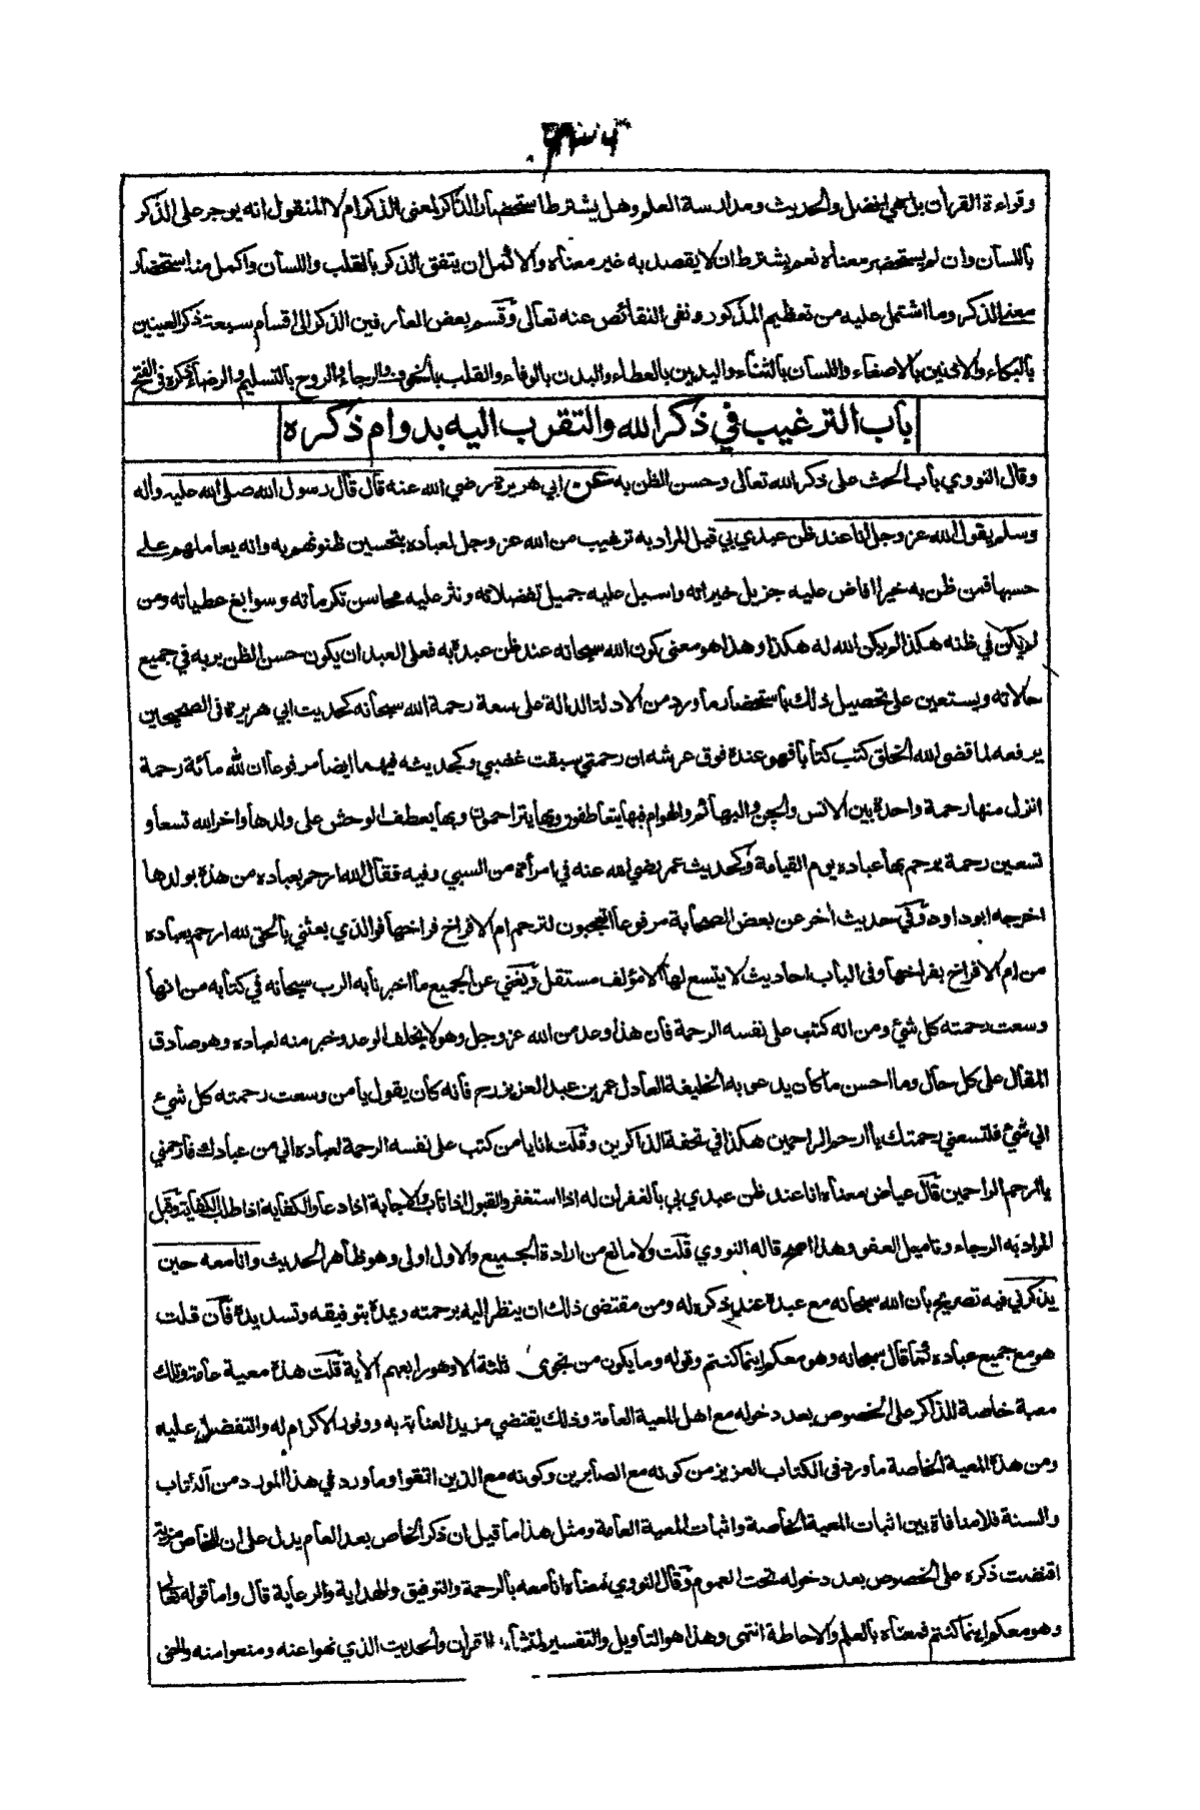 وقراءة القرأن بل هي افضل والحديث ومدارسة العلم وهل يشترط استحضار الذاكر لمعنى الذكر ام لا المنقول انه يوجر على الذكر
باللسان وان لم يستحضر معناه نعم يشترط ان لا يقصد به غير معناه والاكمل ان يتفق الذكر بالقلب واللسان واكمل منه استحضار
معنى الذكر وما اشتمل عليه من تعظيم المذكور ونفى النقائص عنه تعالى وقسم بعض العارفين الذكر الى اقسام سبعة ذكر العينين
بالبكاء والاذنين بالاصغاء واللسان بالثناء واليدين بالعطاء والبدن بالوفاء والقلب بالخوف والرجاء والروح بالتسليم والرضاء ذكره فى الفتح
باب الترغيب في ذكر الله والتقرب اليه بدوام ذكره
وقال النووي باب الحث على ذكر الله تعالى وحسن الظن به عن ابي هريرة رضي الله عنه قال قال رسول الله صلى الله عليه واله
وسلم يقول الله عز وجل انا عند ظن عبدي بي قيل المراد به ترغيب من الله عز وجل لعباده بتحسين ظنونهم به وانه يعاملهم على
حسبها فمن ظن به خيرا افاض عليه جزيل خيراته واسبل عليه جميل تفضلاته ونثر عليه محاسن تكرماته وسوابغ عطياته ومن
لم يكن في ظنه هكذا لم يكن الله له هكذا وهذا هو معنى كون الله سبحانه عند ظن عبده به فعلى العبد ان يكون حسن الظن بربه في جميع
حالاته ويستعين على تحصيل ذلك باستحضار ما ورد من الادلة الدالة على سعة رحمة الله سبحانه كحديث ابي هريرة فى الصحيحين
يرفعه لما قضى الله الخلق كتب كتابا فهو عنده فوق عرشه ان رحمتي سبقت غضبي وكحديثه فيهما ايضا مرفوعا ان لله مائة رحمة
انزل منها رحمة واحدة بين الانس والجن والبهائم والهوام فبها يتعاطفون وبها يتراحمون وبها يعطف الوحش على ولدها واخر الله تسعا و
تسعين رحمة يرحم بها عباده يوم القيامة وكحديث عمر رضي الله عنه في امرأة من السبي وفيه فقال الله ارحم بعباده من هذه بولدها
اخرجه ابو داود وفي حديث أخر عن بعض الصحابة مرفوعا اتعجبون لترحم ام الافراخ فراخها فوالذي بعثني بالحق لله ارحم بعباده
من ام الافراخ بفراخها وفى الباب احاديث لا يتسع لها الا مؤلف مستقل ويغني عن الجميع ما اخبرنا به الرب سبحانه في كتابه من انها
وسعت رحمته كل شيء ومن انه كتب على نفسه الرحمة فان هذا وعد من الله عز وجل وهو لا يخلف الوعد وخبر منه لعباده وهو صادق
المقال على كل حال وما احسن ما كان يدعو به الخليفة العادل عمر بن عبد العزيز رح فانه كان يقول يا من وسعت رحمته كل شيء
الي شيء فلتسعني رحمتك يا ارحم الراحمين هكذا في تحفة الذاكرين وقلت انا يا من كتب على نفسه الرحمة لعباده الي من عبادك فارحمني
يا ارحم الراحمين قال عياض معناه انا عند ظن عبدي بي بالغفران له اذا استغفر والقبول اذا تاب والاجابة اذا دعا والكفاية اذا طلب الكفاية وقيل
المراد به الرجاء وتاميل العفو وهذا اصح قاله النووي قلت ولا مانع من ارادة الجميع والاول اولى وهو ظاهر الحديث وانا معه حين
يذكرني فيه تصريح بان الله سبحانه مع عبده عند ذكره له ومن مقتضى ذلك ان ينظر اليه برحمته ويمده بتوفيقه وتسديده فان قلت
هو مع جميع عباده كما قال سبحانه وهو معكم اينما كنتم وقوله وما يكون من نجوى ثلثة الا وهو رابعهم الأية قلت هذه معية عامة وتلك
معية خاصة للذاكر على الخصوص بعد دخوله مع اهل المعية العامة وذلك يقتضي مزيد العناية به ووفور الاكرام له والتفضل عليه
ومن هذه المعية الخاصة ما ورد فى الكتاب العزيز من كونه مع الصابرين وكونه مع الذين اتقوا وما ورد في هذا المورد من الكتاب
والسنة فلا منافاة بين اثبات المعية الخاصة واثبات المعية العامة ومثل هذا ما قيل ان ذكر الخاص بعد العام يدل على ان للخاص مزية
اقتضت ذكره على الخصوص بعد دخوله تحت العموم وقال النووي معناه انا معه بالرحمة والتوفيق والهداية والرعاية قال واما قوله تعالى
وهو معكم اينما كنتم فمعناه بالعلم والاحاطة انتهى وهذا هو التاويل والتفسير لمتشابه القران والحديث الذي نهوا عنه ومنعوا منه والحق